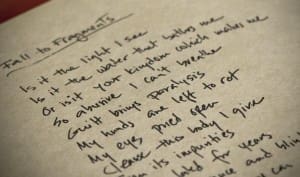 Fall to Fragments
Is it the light I see
Is it the water that bathes me
Or is it your kingdom which makes me
So abusive I can't breathe
Guilt brings paralysis
My hands are left to rot
My eyes pried open
Cleanse this body I give
its impurities
for years
and